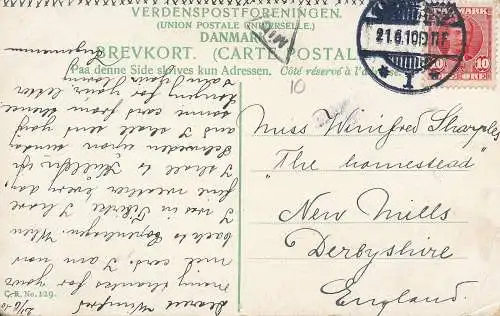 VERDENSPOSTFORENINGEN.
(UNION POSTALE UNIVERSELLE.)
DANMARK
BREVKORT. (CARTE POSTALE
Paa denne Side skrives kun Adressen. Côté réservé à l'adresse.
21.6.10
1
DANMARK
10 10
ØRE
10
Miss Winifred Sharples
"The homestead"
New Mills
Derbyshire
England.
21/6 10
Dearest Winifred
many thanks for your
card. I am now
back to Copenhagen. When
I was in Tibirke I have
fine weather every day.
I shall to
Schweden upon sunday
and I shall send you
some card from there
longing for your letter
G.R. No. 129.